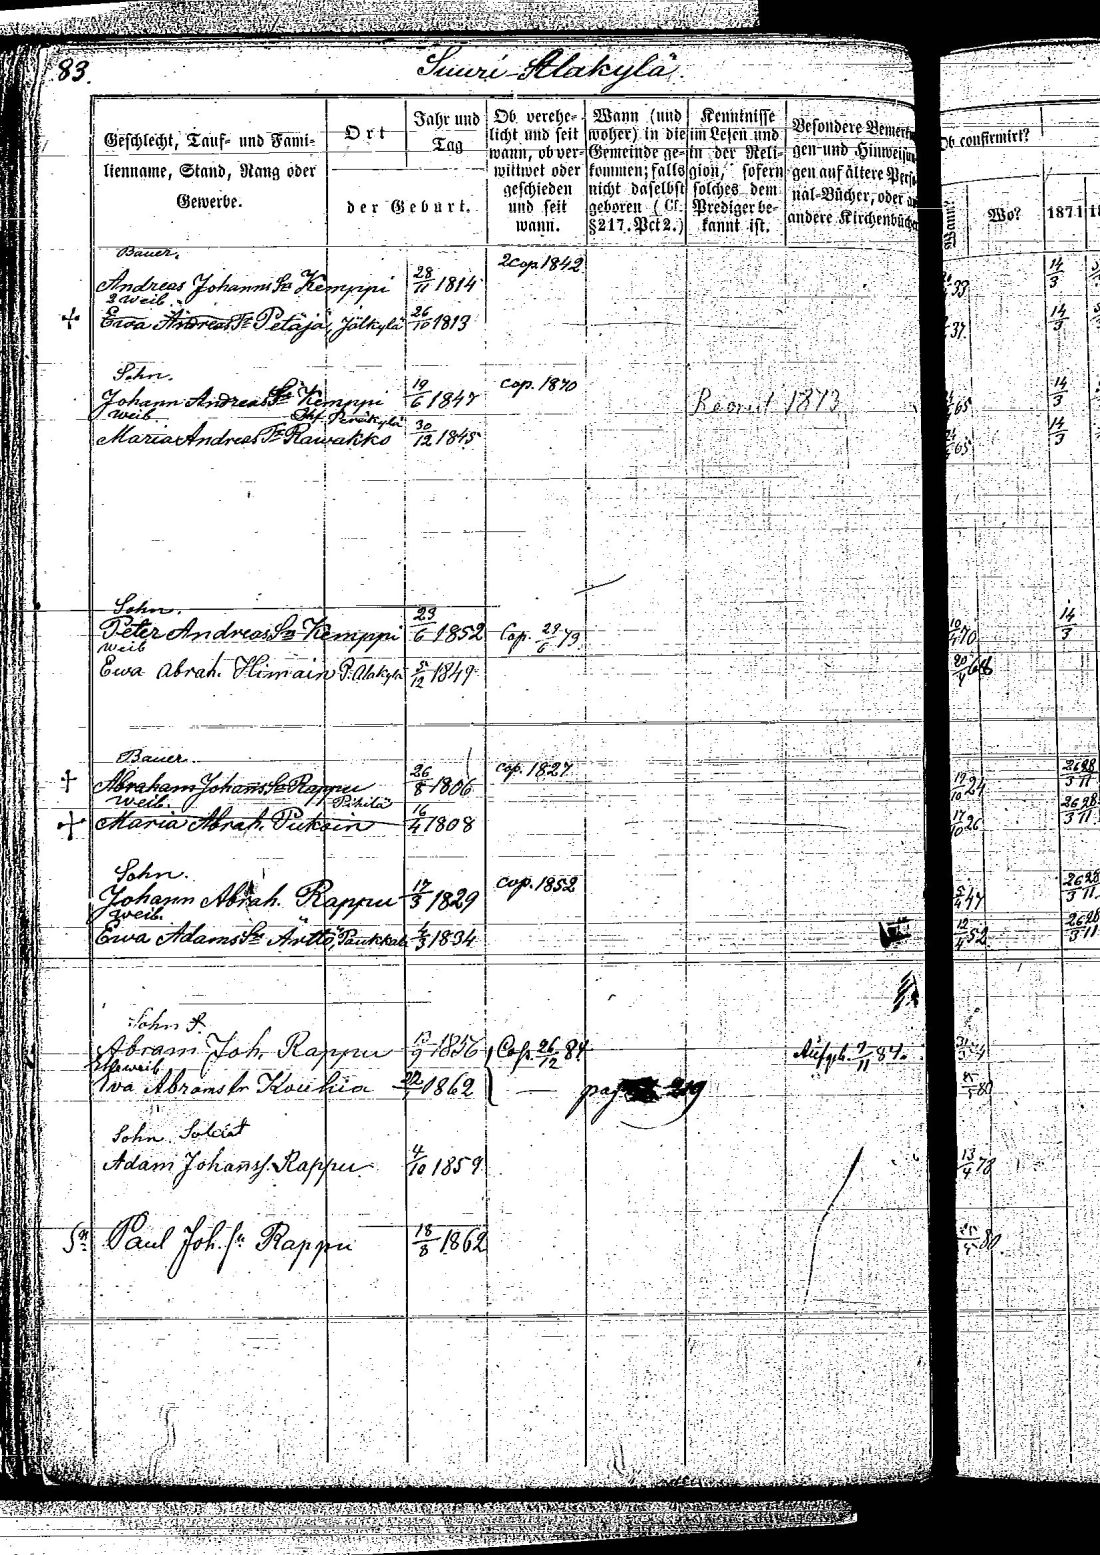 83.
Suuri-Alakylä.
Geschlecht, Tauf- und Fami-
lienname, Stand, Rang oder
Gewerbe.
Ort
der Geburt.
Jahr und
Tag
Ob verehe-
licht und seit
wann, ob ver-
wittwet oder
geschieden
und seit
wann.
Wann (und
woher) in die
Gemeinde ge-
kommen; falls
nicht daselbst
geboren (Cf.
§217. Pct 2.)
Kenntnisse
im Lesen und
in der Reli-
gion, sofern
solches dem
Prediger be-
kannt ist.
Besondere Bemerku
gen und Hinweisun
gen auf ältere Perso
nal-Bücher, oder a
andere Kirchenbüche
Ob confirmirt?
Wann?
Wo?
1871
Bauer.
Andreas Johanns Sn Kemppi 28/11 1814 2 cop 1842 33 14/3
2 Weib.
Ewa Andreas Tr Petäjä, Jälkylä 26/10 1813 37 14/3
Sohn.
Johann Andreas Sn Kemppi 19/6 1847 cop. 1870 Recrut 1873 65 14/3
Weib
Maria Andreas Tr Rawakko 30/12 1845 65 14/3
Sohn.
Peter Andreas Sn Kemppi 23/6 1852 Cop. 29/6 73. 10/4 70 14/3
Weib
Ewa Abrah. Himain P. Alakylä 5/12 1849 20/4 68
Bauer
Abraham Johans Sn Rappu 26/8 1806 cop. 1827 19/10 24 26 28/3 11
Weib. Pihilä
Maria Abrah. Pukain 16/4 1808 17/10 26 26 28/3 11
Sohn.
Johann Abrah. Rappu 17/3 1829 cop. 1852 5/4 47 26 28/3 11
Weib.
Ewa Adams Tr Ärttö, Paukkala 4/3 1834 12/4 52 26 28/3 11
Sohn
Abram Joh. Rappu 1856 Cop. 26/12 84 Aufgeb. 7/11 84.
Eheweib
Eva Abramstr Koukia 1862 pag 219 80
Sohn Soldat
Adam Johanns. Rappu 4/10 1859 13/4 78
Sn Paul Joh. sn Rappu 18/8 1862 80.